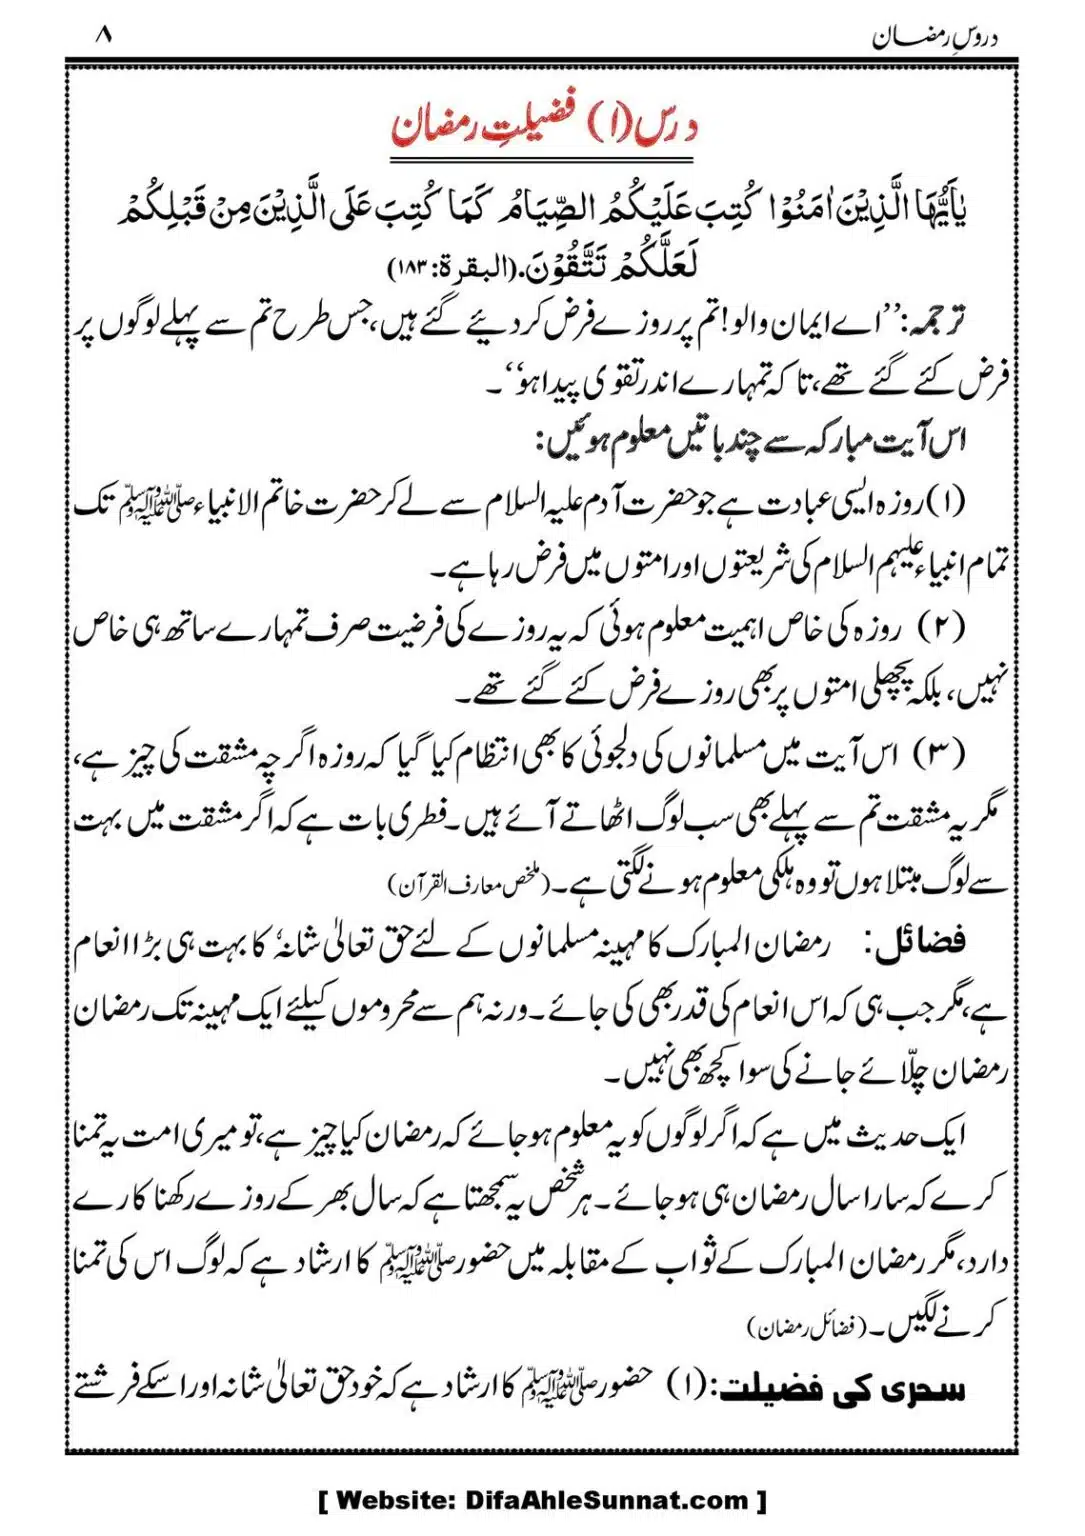 دروسِ رمضان
۸
درس (۱) فضیلتِ رمضان
یٰاَیُّهَا الَّذِیْنَ اٰمَنُوْا کُتِبَ عَلَیْکُمُ الصِّیَامُ کَمَا کُتِبَ عَلَی الَّذِیْنَ مِنْ قَبْلِکُمْ
لَعَلَّکُمْ تَتَّقُوْنَ.(البقرۃ: ۱۸۳)
ترجمہ: ’’اے ایمان والو! تم پر روزے فرض کردیئے گئے ہیں، جس طرح تم سے پہلے لوگوں پر
فرض کئے گئے تھے، تاکہ تمہارے اندر تقوی پیدا ہو‘‘۔
اس آیت مبارکہ سے چند باتیں معلوم ہوئیں:
(۱) روزہ ایسی عبادت ہے جو حضرت آدم علیہ السلام سے لے کر حضرت خاتم الانبیاء ﷺ تک
تمام انبیاء علیہم السلام کی شریعتوں اور امتوں میں فرض رہا ہے۔
(۲) روزہ کی خاص اہمیت معلوم ہوئی کہ یہ روزے کی فرضیت صرف تمہارے ساتھ ہی خاص
نہیں، بلکہ پچھلی امتوں پر بھی روزے فرض کئے گئے تھے۔
(۳) اس آیت میں مسلمانوں کی دلجوئی کا بھی انتظام کیا گیا کہ روزہ اگرچہ مشقت کی چیز ہے،
مگر یہ مشقت تم سے پہلے بھی سب لوگ اٹھاتے آئے ہیں۔ فطری بات ہے کہ اگر مشقت میں بہت
سے لوگ مبتلا ہوں تو وہ ہلکی معلوم ہونے لگتی ہے۔ (ملخص معارف القرآن)
فضائل: رمضان المبارک کا مہینہ مسلمانوں کے لئے حق تعالیٰ شانہٗ کا بہت ہی بڑا انعام
ہے، مگر جب ہی کہ اس انعام کی قدر بھی کی جائے۔ ورنہ ہم سے محروموں کیلئے ایک مہینہ تک رمضان
رمضان چلّائے جانے کی سوا کچھ بھی نہیں۔
ایک حدیث میں ہے کہ اگر لوگوں کو یہ معلوم ہوجائے کہ رمضان کیا چیز ہے، تو میری امت یہ تمنا
کرے کہ سارا سال رمضان ہی ہوجائے۔ ہر شخص یہ سمجھتا ہے کہ سال بھر کے روزے رکھنا کارے
دارد، مگر رمضان المبارک کے ثواب کے مقابلہ میں حضور ﷺ کا ارشاد ہے کہ لوگ اس کی تمنا
کرنے لگیں۔ (فضائل رمضان)
سحری کی فضیلت: (۱) حضور ﷺ کا ارشاد ہے کہ خود حق تعالیٰ شانہ اور اسکے فرشتے
[ Website: DifaAhleSunnat.com ]